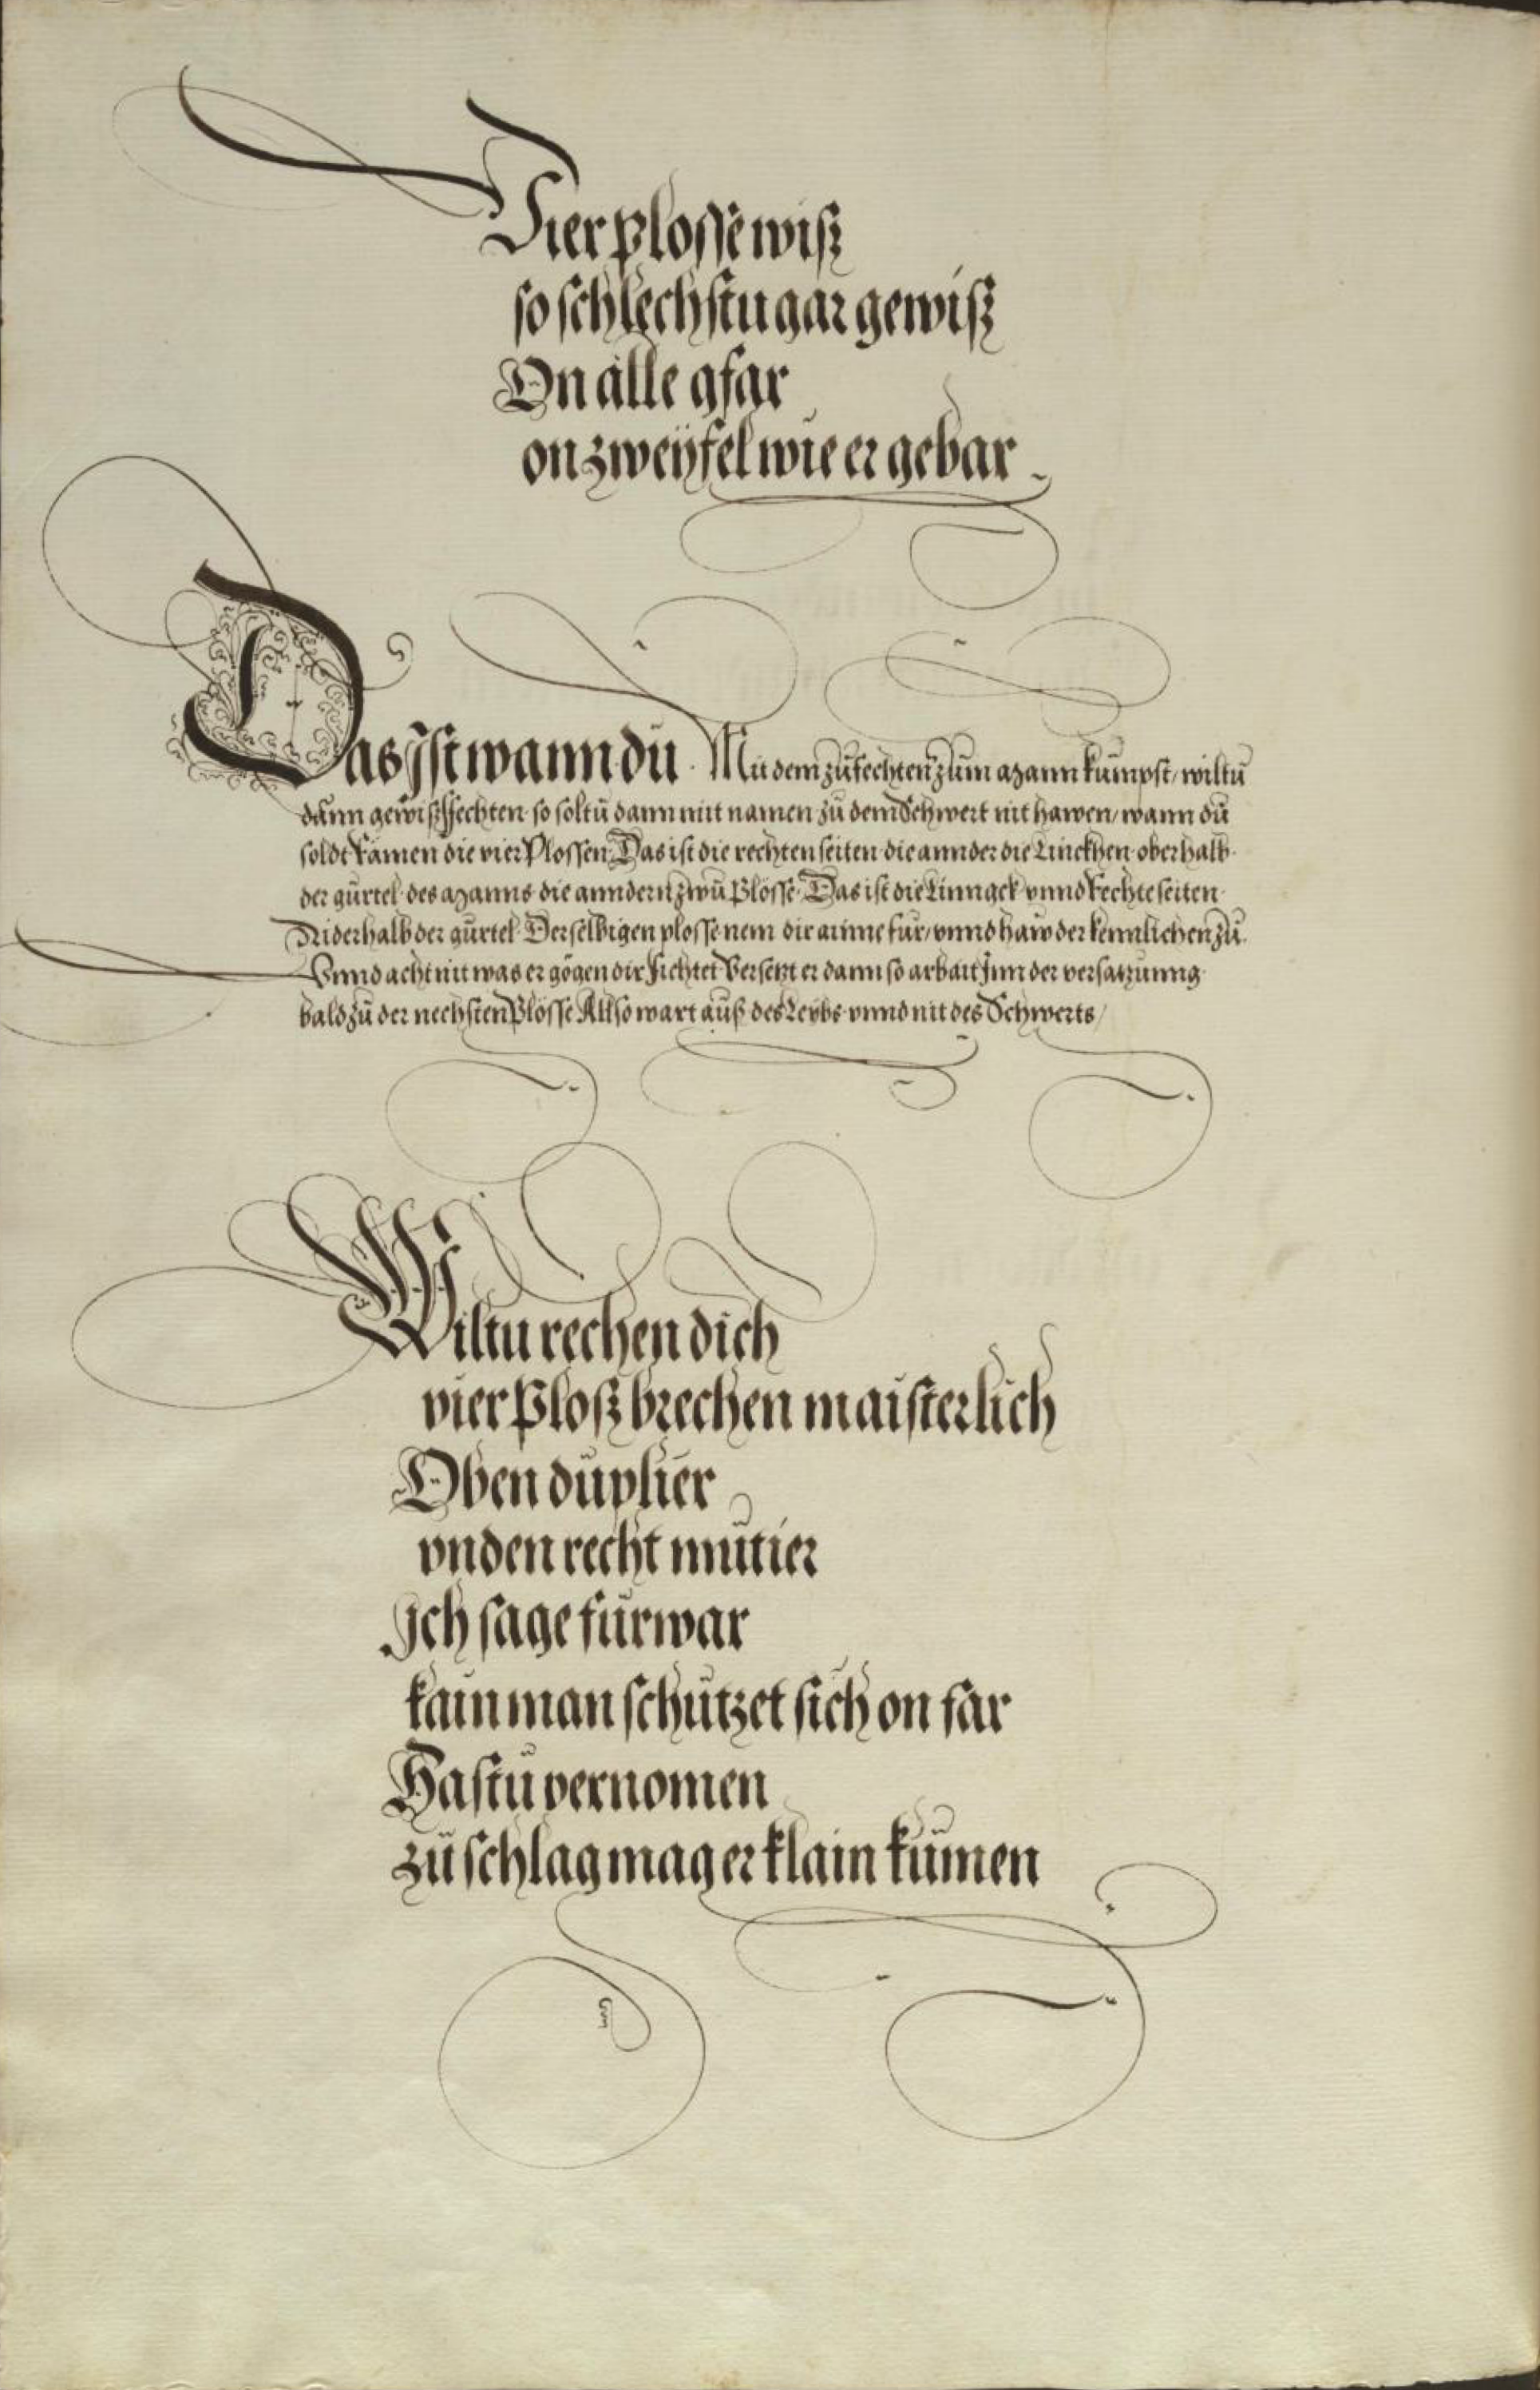 Vier plosse wiß
so schlechstu gar gewiß
On alle gfar
on zweÿfel wie er gebar
Das Ist wann du Mit dem zufechten zum Mann kumpst / wiltu
dann gewiß fechten so soltu dann mit namen zu dem Schwert nit hawen / wann du
soldt Ramen die vier Plossen Das ist die rechten seiten die annder die Linckhen oberhalb
der gurtel des Manns die anndern zwu Plösse Das ist die Linngck vnnd Rechte seiten
Niderhalb der gurtel Derselbigen plosse nem dir aine fur / vnnd haw der kennlichen zu
Vnnd acht nit was er gögen dir fichtet Versetzt er dann so arbait Inn der versatzunng
bald zu der nechsten Plösse Allso wart auß des Leybs vnnd nit des Schwerts /
Wiltu rechen dich
vier Ploß brechen maisterlich
Oben duplier
vnden recht mutier
Ich sage furwar
kain man schutzet sich on far
Hastu vernomen
zu schlag mag er klain kumen